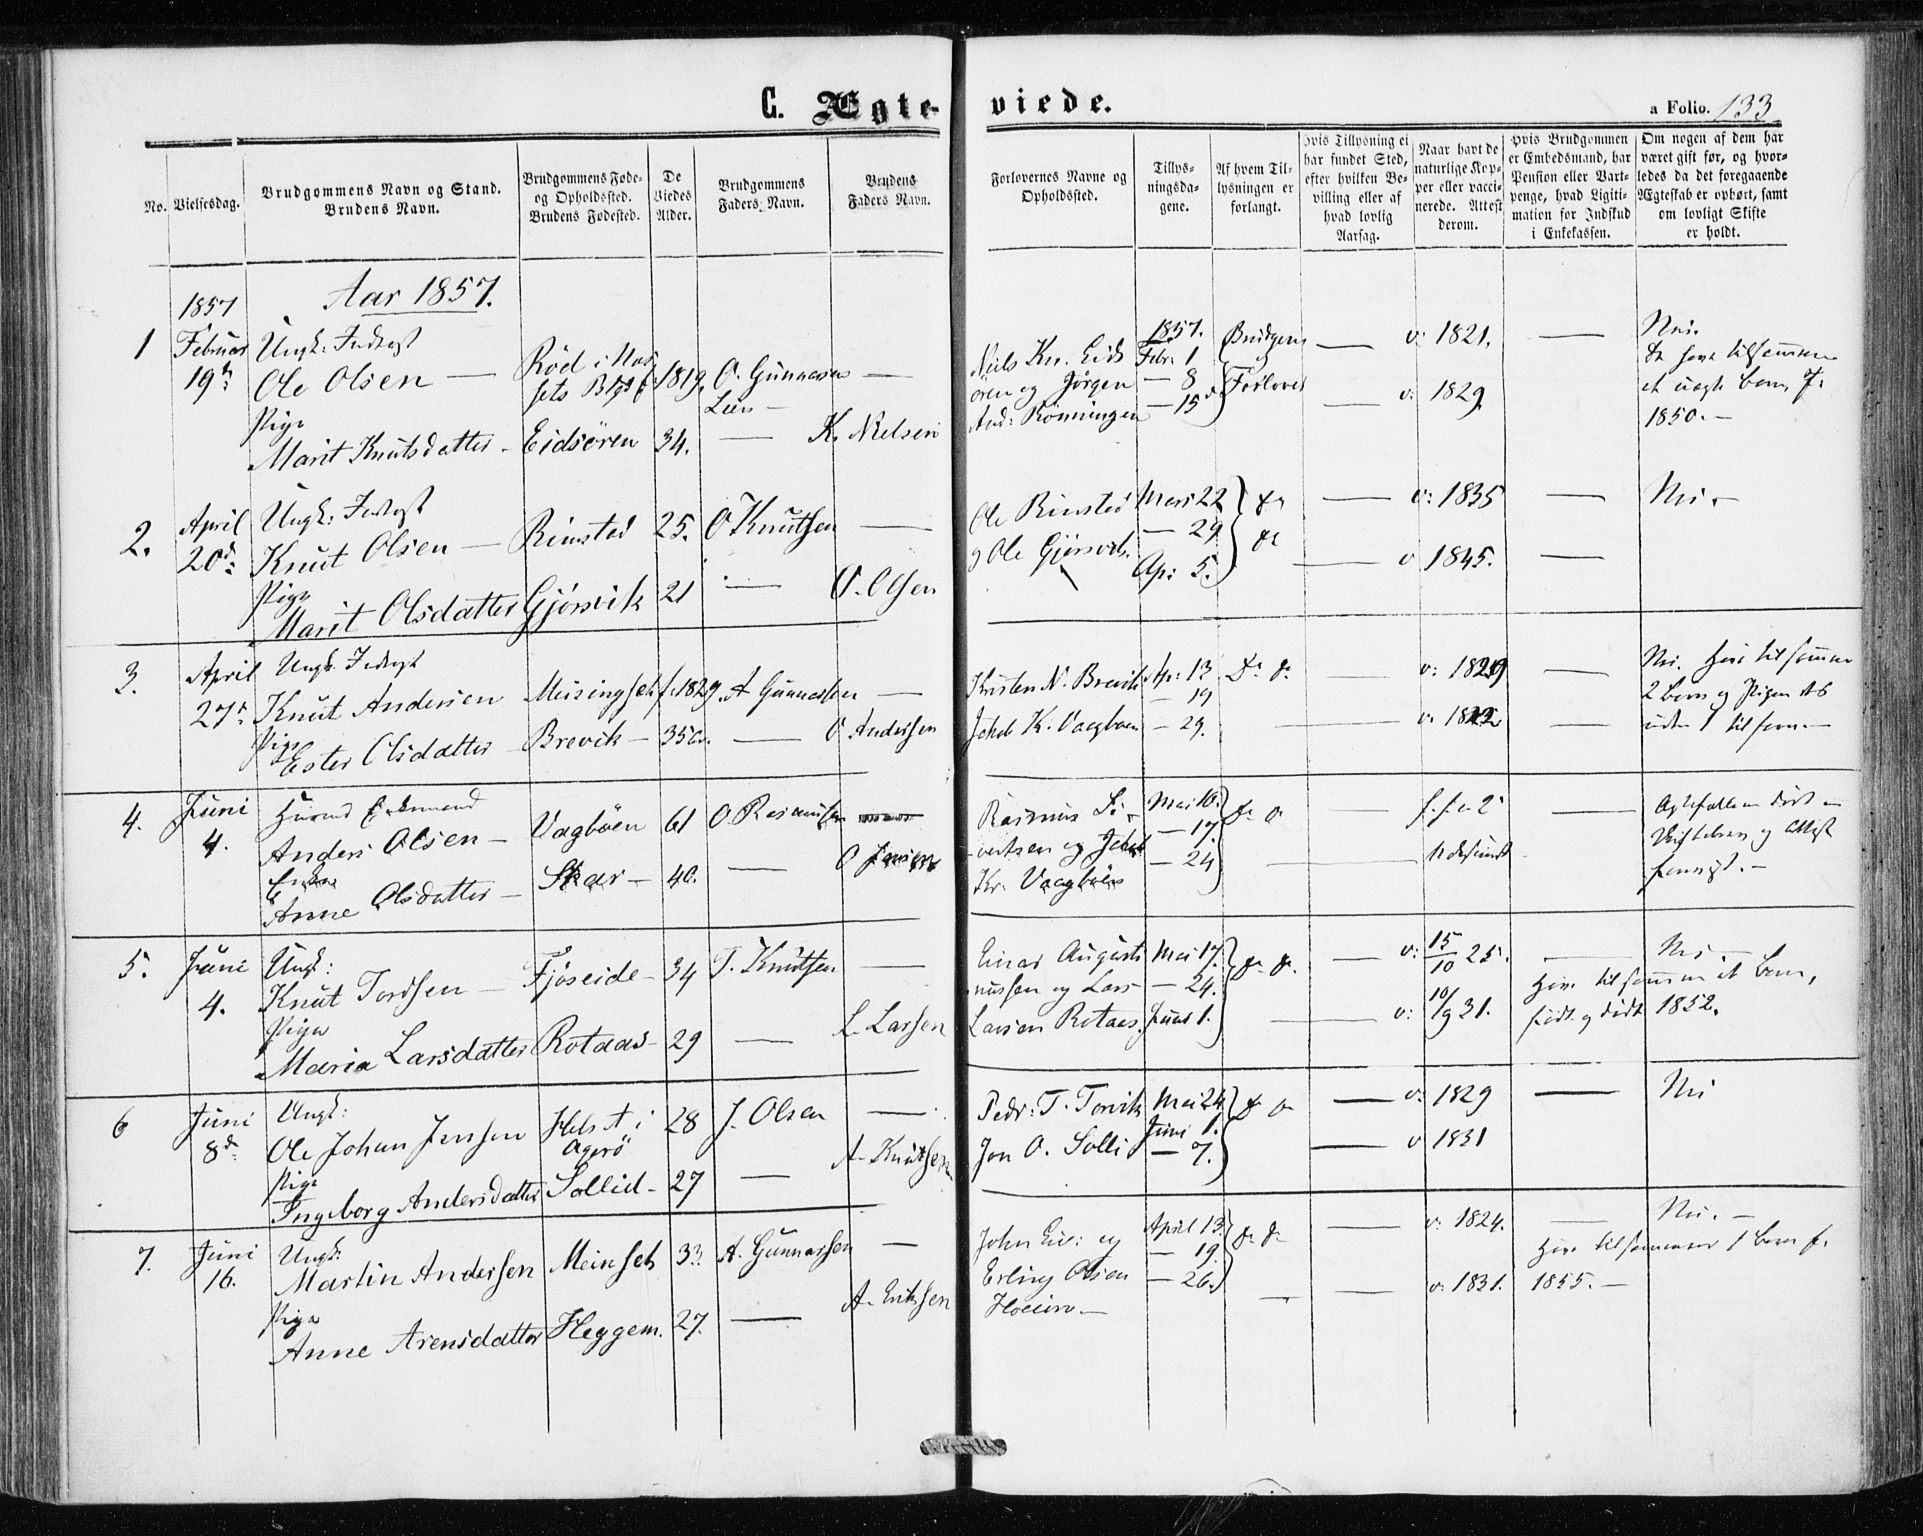 C. Ægte-
viede.
a Folio. 133
No.
Vielsesdag.
Brudgommens Navn og Stand.
Brudens Navn.
Brudgommens Føde-
og Opholdssted.
Brudens Fødested.
De
Viedes
Alder.
Brudgommens
Faders Navn.
Brudens
Faders Navn.
Forlovernes Navne og
Opholdssted.
Tillys-
ningsda-
gene.
Af hvem Til-
lysningen er
forlangt.
Hvis Tillysning ei
har fundet Sted,
efter hvilken Be-
villing eller af
hvad lovlig
Aarsag.
Naar havt de
naturlige Kop-
per eller vacci-
nerede. Attest
derom.
Hvis Brudgommen
er Embedsmand, har
Pension eller Vart-
penge, hvad Ligiti-
mation for Indskud
i Enkekassen.
Om nogen af dem har
været gift før, og hvor-
ledes da det foregaaende
Ægteskab er ophørt, samt
om lovligt Skifte
er holdt.
Aar 1857.
1857
1
Februar
19
Ungk:
Ole Olsen —
Pige
Marit Knutsdatter -
Röd i
Eidsören
1819.
34.
O. Gunnersen
Lien —
—
K. Nielsen
Niels Kn. Eids
ören og Jörgen
And: Rönningen
1857.
Febr: 1
— 8
— 15
Brudgom
og
Forlover
v: 1821.
v: 1829
Nei.
1850. —
2.
April
20
Ungk:
Knut Olsen —
Pige
Marit Olsdatter
Rinsted
Gjörsvik
25.
21
O Knutsen
—
O. Olsen
Ole Rinsted
og Ole Gjörsvik
Mars 22
— 29
Ap: 5.
v: 1835
v 1845.
Nei. —
3.
April
27
Ungk:
Knut Andersen
Pige
Ester Olsdatter
Meisingset
Brevik —
f. 1829.
35
A Gunnersen
—
O Andersen
Kristen N. Brevik
K. Vaagbøen
Ap: 13
— 19
— 29.
v: 1829
Nei. Have tilsammen
2 born og Pigen
4.
Juni
4.
Enkemand
Anders Olsen —
Enke
Anne Olsdatter —
Vagböen
Skar —
61
40.
O Rasmusen
O Jensen
Rasmus Si-
vertsen og
Kr: Vaagböen
Mai 10.
— 17
— 24
5.
Juni
4.
Ungk:
Knut Tordsen —
Pige
Maria Larsdatter
Fjöseide —
Rotaas —
34
29
T. Knutsen
—
L Larsen
Einar Augusti-
nussen og Lars
Larsen Rotaas
Mai 17.
— 24.
Juni 1.
v: 15/10 25.
v: 10/9 31.
Nei. —
Have tilsammen et barn,
født og dødt 1852.
6
Juni
8
Ungk:
Ole Johan Jensen
Pige
Ingeborg Andersdatter
i
Agerö
Sollid —
28
27
J. Olsen
—
A. Knutsen
Pedr: T. Torvik
Jon O. Solli
Mai 24
Juni 1.
— 7.
v: 1829
v 1831
Nei
7.
Juni
16.
Ungk:
Martin Andersen
Pige
Anne Arensdatter
Meinset
Heggem.
33
27.
A. Gunnarsen
—
A. Eriksen
John og
Erling Olsen
Hoeim —
April 13
— 19
— 26.
v: 1824.
v: 1831.
Nei. —
Have tilsammen 1 barn f.
1855. —